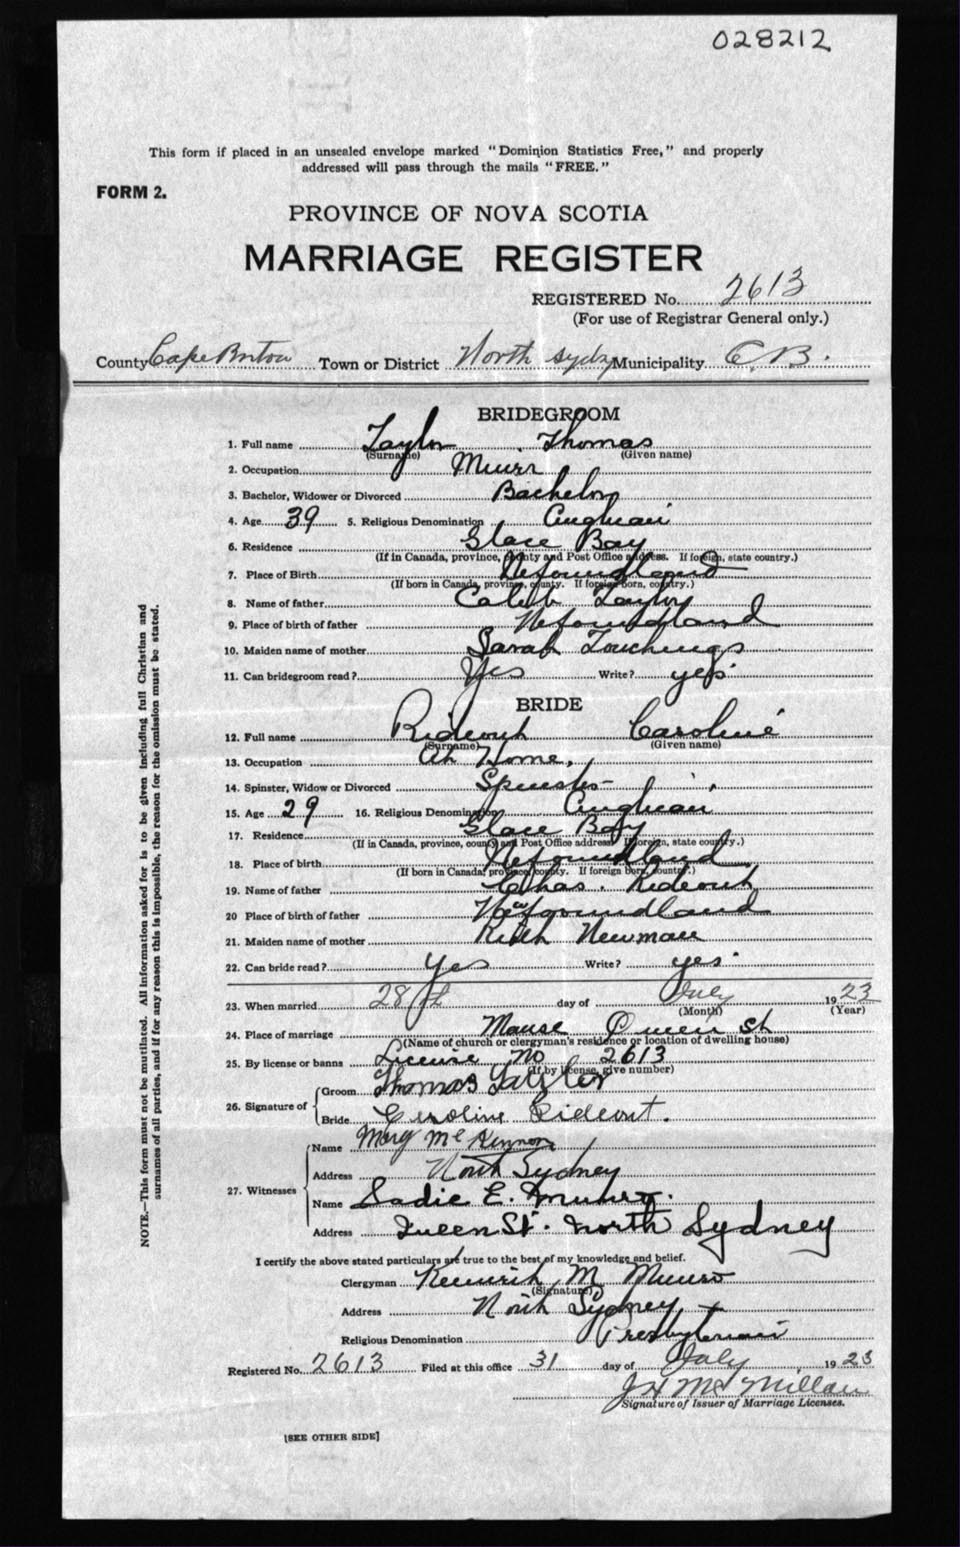 028212
This form if placed in an unsealed envelope marked "Dominion Statistics Free," and properly
addressed will pass through the mails "FREE."
FORM 2.
PROVINCE OF NOVA SCOTIA
MARRIAGE REGISTER
REGISTERED No. 2613
(For use of Registrar General only.)
County Cape Breton Town or District North Sydney Municipality C.B.
BRIDEGROOM
1. Full name Taylor Thomas
(Surname) (Given name)
2. Occupation Miner
3. Bachelor, Widower or Divorced Bachelor
4. Age 39 5. Religious Denomination Anglican
6. Residence Glace Bay
(If in Canada, province, county and Post Office address. If foreign, state country.)
7. Place of Birth Nefoundland
(If born in Canada, province, county. If foreign born, country.)
8. Name of father Caleb Taylor
9. Place of birth of father Nefoundland
10. Maiden name of mother Sarah Touchings
11. Can bridegroom read? Yes Write? yes
BRIDE
12. Full name Rideout Caroline
(Surname) (Given name)
13. Occupation At Home.
14. Spinster, Widow or Divorced Spinster
15. Age 29 16. Religious Denomination Anglican
17. Residence Glace Bay
(If in Canada, province, county and Post Office address. If foreign, state country.)
18. Place of birth Nefoundland
(If born in Canada, province, county. If foreign born, country.)
19. Name of father Chas. Rideout
20 Place of birth of father Newfoundland
21. Maiden name of mother Ruth Newman
22. Can bride read? Yes Write? yes
23. When married 28th day of July 1923
(Month) (Year)
24. Place of marriage Manse Queen St
(Name of church or clergyman's residence or location of dwelling house)
25. By license or banns License No 2613
(If by license, give number)
26. Signature of Groom Thomas Taylor
Bride Caroline Rideout.
27. Witnesses Name Mary McKinnon
Address North Sydney
Name Sadie E.
Address Queen St. North Sydney
I certify the above stated particulars are true to the best of my knowledge and belief.
Clergyman M Munro
(Signature)
Address North Sydney
Religious Denomination Presbyterian
Registered No. 2613 Filed at this office 31 day of July 1923
J H McMillan
Signature of Issuer of Marriage Licenses.
[SEE OTHER SIDE]
NOTE.—This form must not be mutilated. All information asked for is to be given including full Christian and
surnames of all parties, and if for any reason this is impossible, the reason for the omission must be stated.